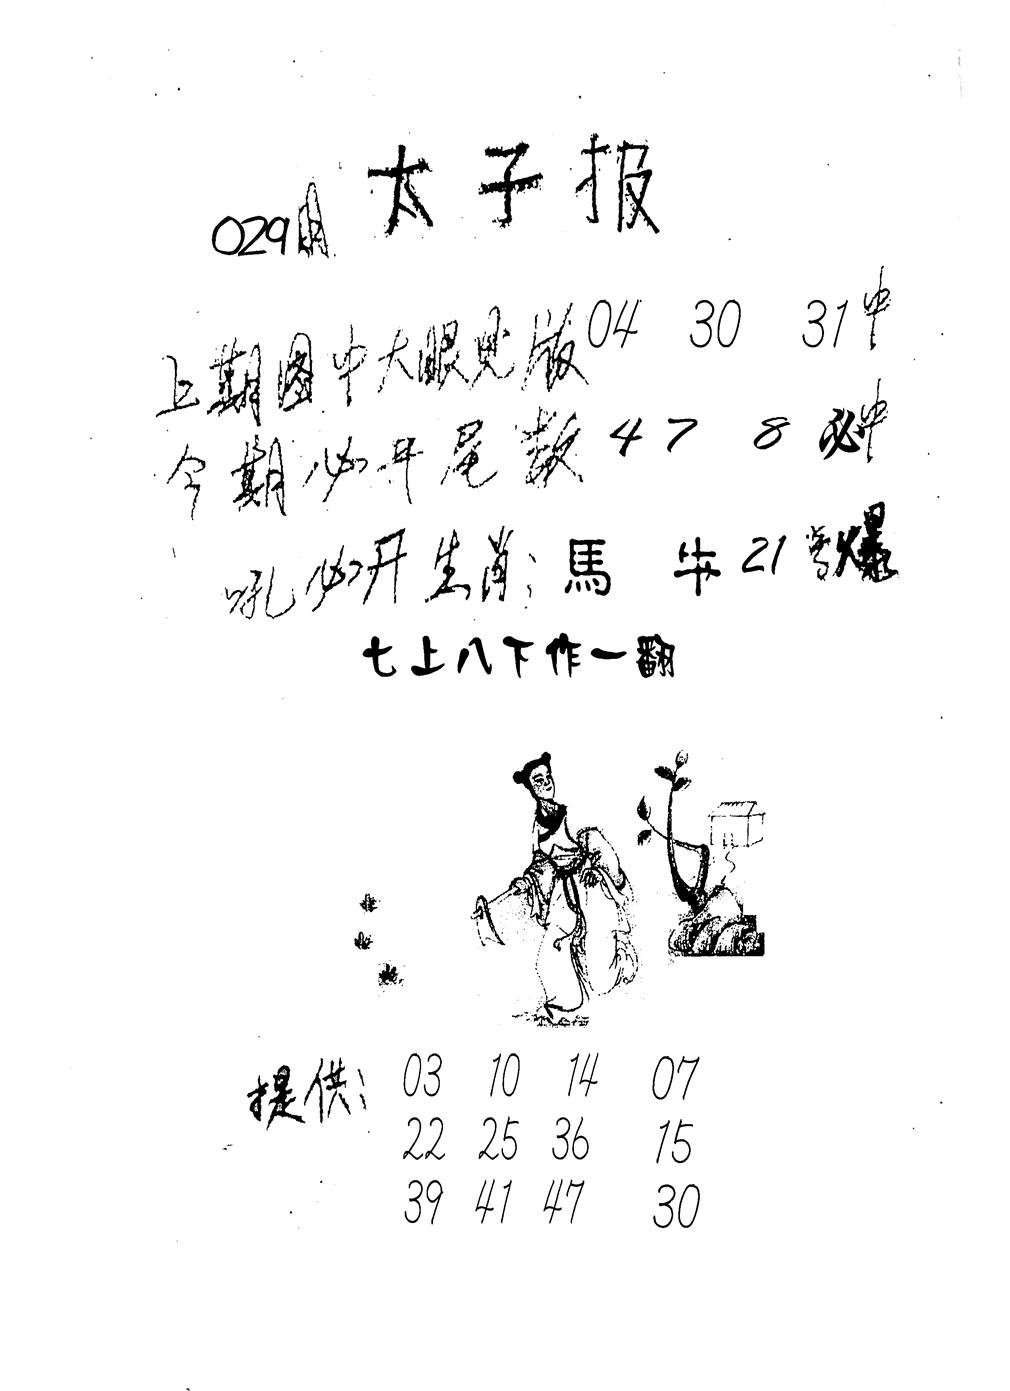 太子报
029期
上期图中大眼见版04 30 31中
今期必开尾数 4 7 8 必中
吼必开生肖：馬 牛 21 爆
七上八下作一翻
提供：03 10 14 07
22 25 36 15
39 41 47 30